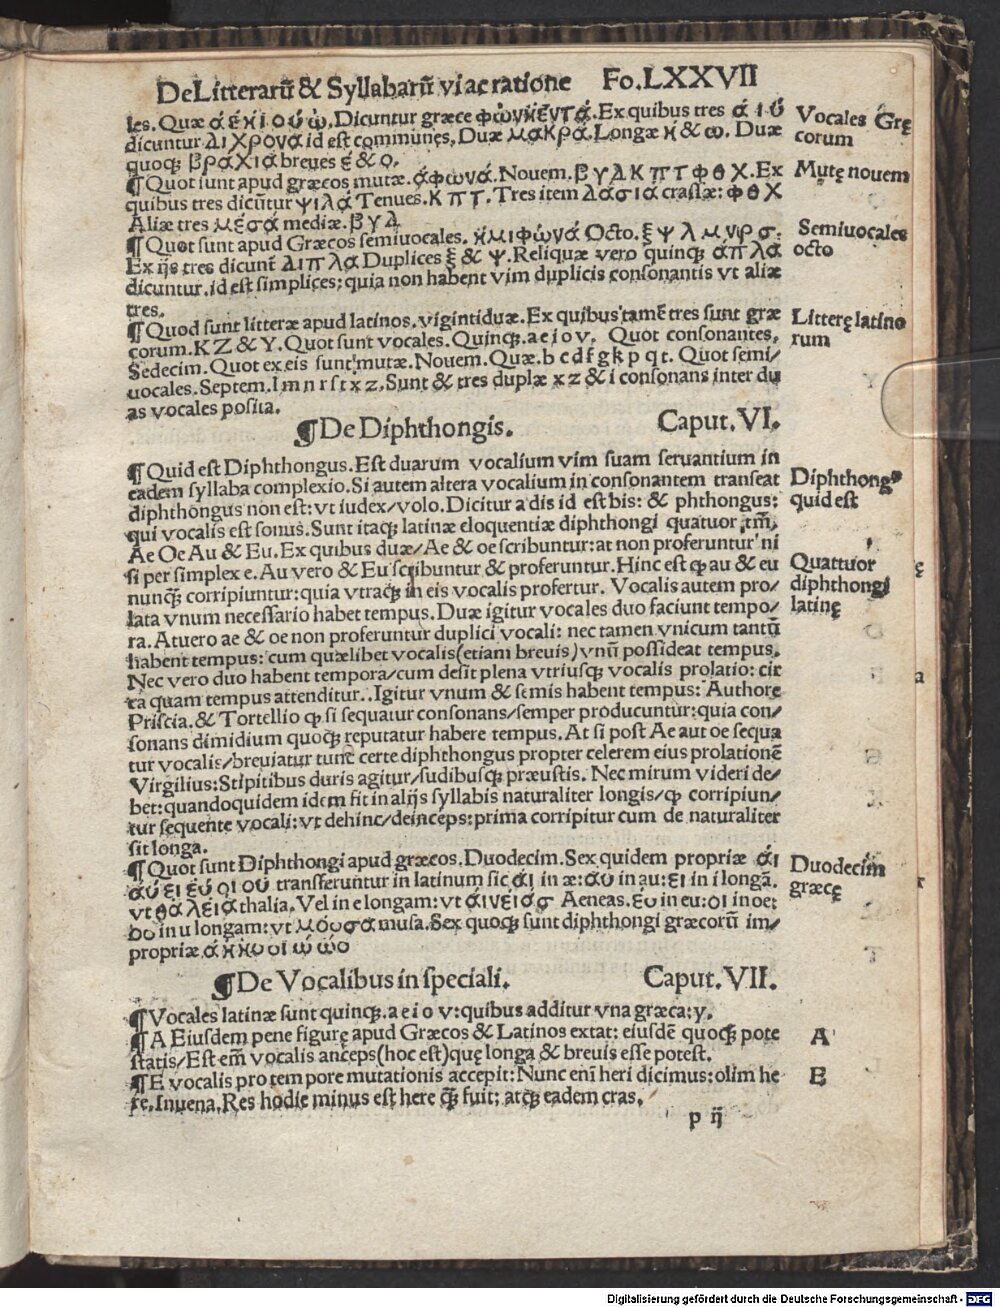 De Litterarū & Syllabarū vi ac ratione Fo. LXXVII
les. Quæ ά έ ή ι ο ύ ώ. Dicuntur græce φώνήεντά. Ex quibus tres ά ι ύ
Vocales Grę
dicuntur Διχρονα id est communes. Duæ μακρά. Longæ η & ω. Duæ
corum
quoq; βραχια breues έ & ο.
¶ Quot sunt apud græcos mutæ. άφωνά. Nouem. β γ δ κ π τ φ θ χ. Ex
Mutę nouem
quibus tres dicūtur ψιλά Tenues. κ π τ. Tres item δασια crassæ: φ θ χ
Aliæ tres μέσά mediæ. β γ δ
¶ Quot sunt apud Græcos semiuocales. ήμιφώνά Octo. ξ ψ λ μ ν ρ σ.
Semiuocales
Ex ijs tres dicunt̄ διπλα Duplices ξ & ψ. Reliquæ vero quinq; άπλα
octo
dicuntur. id est simplices: quia non habent vim duplicis consonantis vt aliæ
tres.
¶ Quod sunt litteræ apud latinos. vigintiduæ. Ex quibus tamē tres sunt græ
Litterę latino
corum. K Z & Y. Quot sunt vocales. Quinq;. a e i o v. Quot consonantes.
rum
Sedecim. Quot ex eis sunt mutæ. Nouem. Quæ. b c d f g k p q t. Quot semi/
uocales. Septem. l m n r s x z. Sunt & tres duplæ x z & i consonans inter du
as vocales posita.
¶ De Diphthongis. Caput. VI.
¶ Quid est Diphthongus. Est duarum vocalium vim suam seruantium in
eadem syllaba complexio. Si autem altera vocalium in consonantem transeat
Diphthongꝰ
diphthongus non est: vt iudex/volo. Dicitur a dis id est bis: & phthongus:
quid est
qui vocalis est sonus. Sunt itaq; latinæ eloquentiæ diphthongi quatuor tm̄.
Ae Oe Au & Eu. Ex quibus duæ/Ae & oe scribuntur: at non proferuntur ni
si per simplex e. Au vero & Eu scribuntur & proferuntur. Hinc est ꝙ au & eu
Quattuor
nunq̄; corripiuntur: quia vtraq; in eis vocalis profertur. Vocalis autem pro/
diphthongi
lata vnum necessario habet tempus. Duæ igitur vocales duo faciunt tempo/
latinę
ra. At uero ae & oe non proferuntur duplici vocali: nec tamen vnicum tantū
habent tempus: cum quælibet vocalis(etiam breuis)vnū possideat tempus.
Nec vero duo habent tempora/cum desit plena vtriusq; vocalis prolatio: cir
ca quam tempus attenditur. Igitur vnum & semis habent tempus: Authore
Priscia. & Tortellio ꝙ si sequatur consonans/semper producuntur: quia con/
sonans dimidium quoq; reputatur habere tempus. At si post Ae aut oe sequa
tur vocalis/breuiatur tunc certe diphthongus propter celerem eius prolationē
Virgilius: Stipitibus duris agitur/sudibusq; præustis. Nec mirum videri de/
bet: quandoquidem idem fit in alijs syllabis naturaliter longis/ꝙ corripiun/
tur sequente vocali: vt dehinc/deinceps: prima corripitur cum de naturaliter
sit longa.
¶ Quot sunt Diphthongi apud græcos. Duodecim. Sex quidem propriæ άι
Duodecim
άύ έι έύ όι ού transferuntur in latinum sic άι in æ: άυ in au: ει in i longā.
græcę
vt θάλέια thalia. Vel in e longam: vt άινέιάσ Aeneas. έυ in eu: οι in oe:
ου in u longam: vt μόυσά musa. Sex quoq; sunt diphthongi græcorū im/
propriæ ά ή ήυ οι ώ ώυ
¶ De Vocalibus in speciali. Caput. VII.
¶ Vocales latinæ sunt quinq;. a e i o v: quibus additur vna græca: y.
¶ A Eiusdem pene figurę apud Græcos & Latinos extat: eiusdē quoq; pote
A
statis/Est em̄ vocalis anceps(hoc est)quę longa & breuis esse potest.
¶ E vocalis pro tempore mutationis accepit: Nunc enī heri dicimus: olim he
E
re. Iuuena. Res hodie minus est here q̄; fuit: atq; eadem cras.
p ij
Digitalisierung gefördert durch die Deutsche Forschungsgemeinschaft - DFG